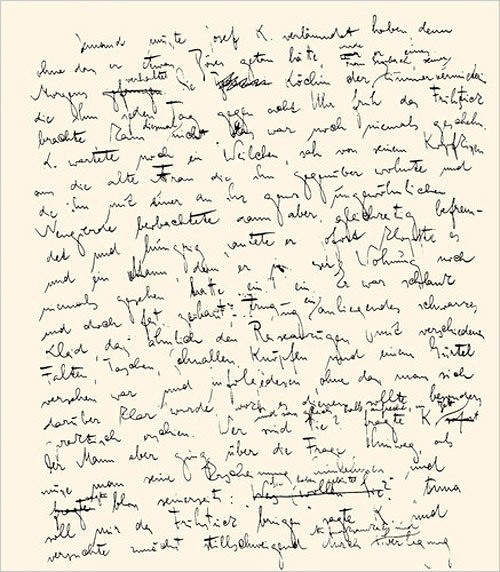 Jemand musste Josef K. verläumdet haben, denn
ohne dass er etwas Böses getan hätte, wurde er eines
Morgens gefangen verhaftet. Die Köchin der Frau Grubach, seiner Zimmervermieterin
die ihm jeden Tag gegen acht Uhr früh das Frühstück
brachte kam diesmal nicht. Das war noch niemals geschehn.
K. wartete noch ein Weilchen, sah von seinem Kopfkissen
aus die alte Frau die ihm gegenüber wohnte und
die ihn mit einer an ihr ganz ungewöhnlichen
Neugierde beobachtete, dann aber, gleichzeitig befrem-
det und hungrig, läutete er. Sofort klopfte es
und ein Mann, den er in dieser Wohnung noch
niemals gesehen hatte trat ein. Er war schlank
und doch fest gebaut, er trug ein anliegendes schwarzes
Kleid, das ähnlich den Reiseanzügen mit verschiedenen
Falten, Taschen, Schnallen, Knöpfen und einem Gürtel
versehen war und infolgedessen, ohne dass man sich
darüber klar wurde, wozu es dienen sollte, besonders
praktisch erschien. Wer sind Sie? fragte K. und sass gleich halb aufrecht im Bett
Der Mann aber ging über die Frage hinweg, als
müsse man seine Erscheinung hinnehmen und
fragte sagte bloss seinerseits: Was wollen Sie? Sie haben geläutet? Anna
soll mir das Frühstück bringen, sagte K. und
versuchte zunächst stillschweigend durch Aufmerksamkeit und Überlegung